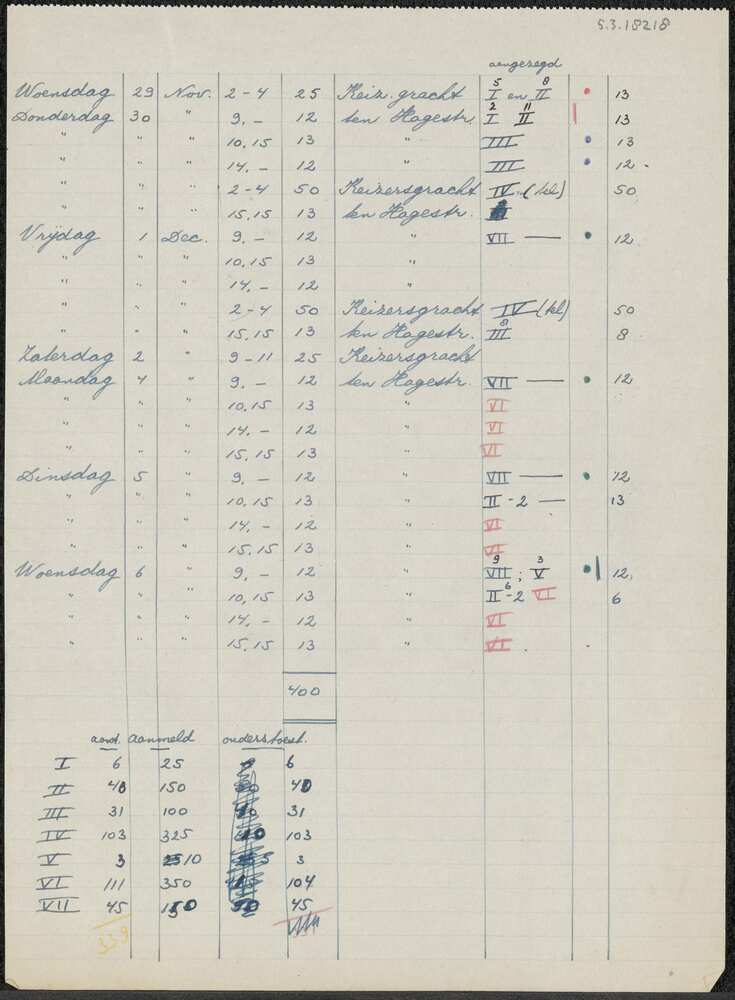 5.3.18218
aangezegd
5 8
Woensdag 29 Nov. 2-4 25 Keiz. gracht I en II 13
2 11
Donderdag 30 " 9,- 12 ten Hagestr. I II 13
" " 10,15 13 " III 13
" " 14,- 12 " III 12
" " 2-4 50 Keizersgracht IV (tel) 50
" " 15,15 13 ten Hagestr.
Vrijdag 1 Dec. 9,- 12 " VII — 12
" " 10,15 13 "
" " 14,- 12 "
" " 2-4 50 Keizersgracht IV (tel) 50
8
" " 15,15 13 ten Hagestr. III 8
Zaterdag 2 " 9-11 25 Keizersgracht
Maandag 4 " 9,- 12 ten Hagestr. VII — 12
" " " 10,15 13 " VI
" " " 14,- 12 " VI
" " " 15,15 13 " VI
Dinsdag 5 " 9,- 12 " VII — 12
" " " 10,15 13 " II-2 — 13
" " " 14,- 12 " VI
" " " 15,15 13 " VI
9 3
Woensdag 6 " 9,- 12 " VII ; V 12
6
" " " 10,15 13 " II-2 VI 6
" " " 14,- 12 " VI
" " " 15,15 13 " VI
400
aant. aanmeld onderst.toest.
I 6 25 6
II 40 150 40
III 31 100 31
IV 103 325 103
V 3 10 5 3
VI 111 350 104
VII 45 150 45
339